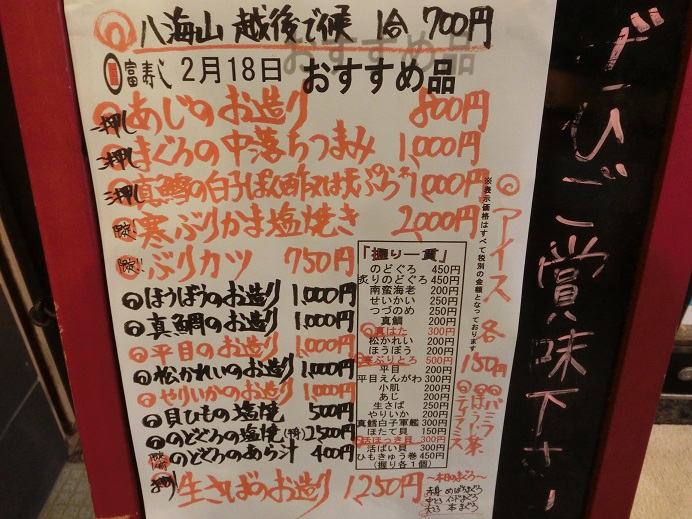 八海山 越後で候 1合 700円
富寿し 2月18日 おすすめ品
一押し あじのお造り 800円
二押し まぐろの中落ちつまみ 1,000円
三押し 真鱈の白子ぽん酢又は天ぷら 1,000円
限定!! 寒ぶりかま塩焼き 2,000円
限定!! ぶりカツ 750円
ほうぼうのお造り 1,000円
真鯛のお造り 1,000円
平目のお造り 1,000円
松かれいのお造り 1,000円
やりいかのお造り 1,000円
貝ひもの塩焼 500円
のどぐろの塩焼(半身) 2,500円
のどぐろのあら汁 400円
生さばのお造り 1,250円
「握り一貫」
のどぐろ 450円
炙りのどぐろ 450円
南蛮海老 200円
せいかい 250円
つづのめ 250円
真鯛 200円
真はた 300円
松かれい 200円
ほうぼう 200円
寒ぶりとろ 500円
平目 200円
平目えんがわ 300円
小肌 200円
あじ 200円
生さば 250円
やりいか 200円
真鱈白子軍艦 300円
ほたて貝 150円
活ほっき貝 300円
活ばい貝 300円
ひもきゅう巻 450円
(握り各1個)
※表示価格はすべて税別の金額となっております
アイス 各150円
バニラ
ほうじ茶
ティラミス
〜本日のまぐろ〜
赤身 めばちまぐろ
中とろ インドまぐろ
大とろ 本まぐろ
ぜひご賞味下さい